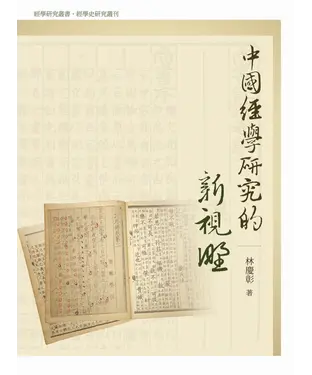 經學研究叢書・經學史研究叢刊
中國經學研究的
新視野
林慶彰 著